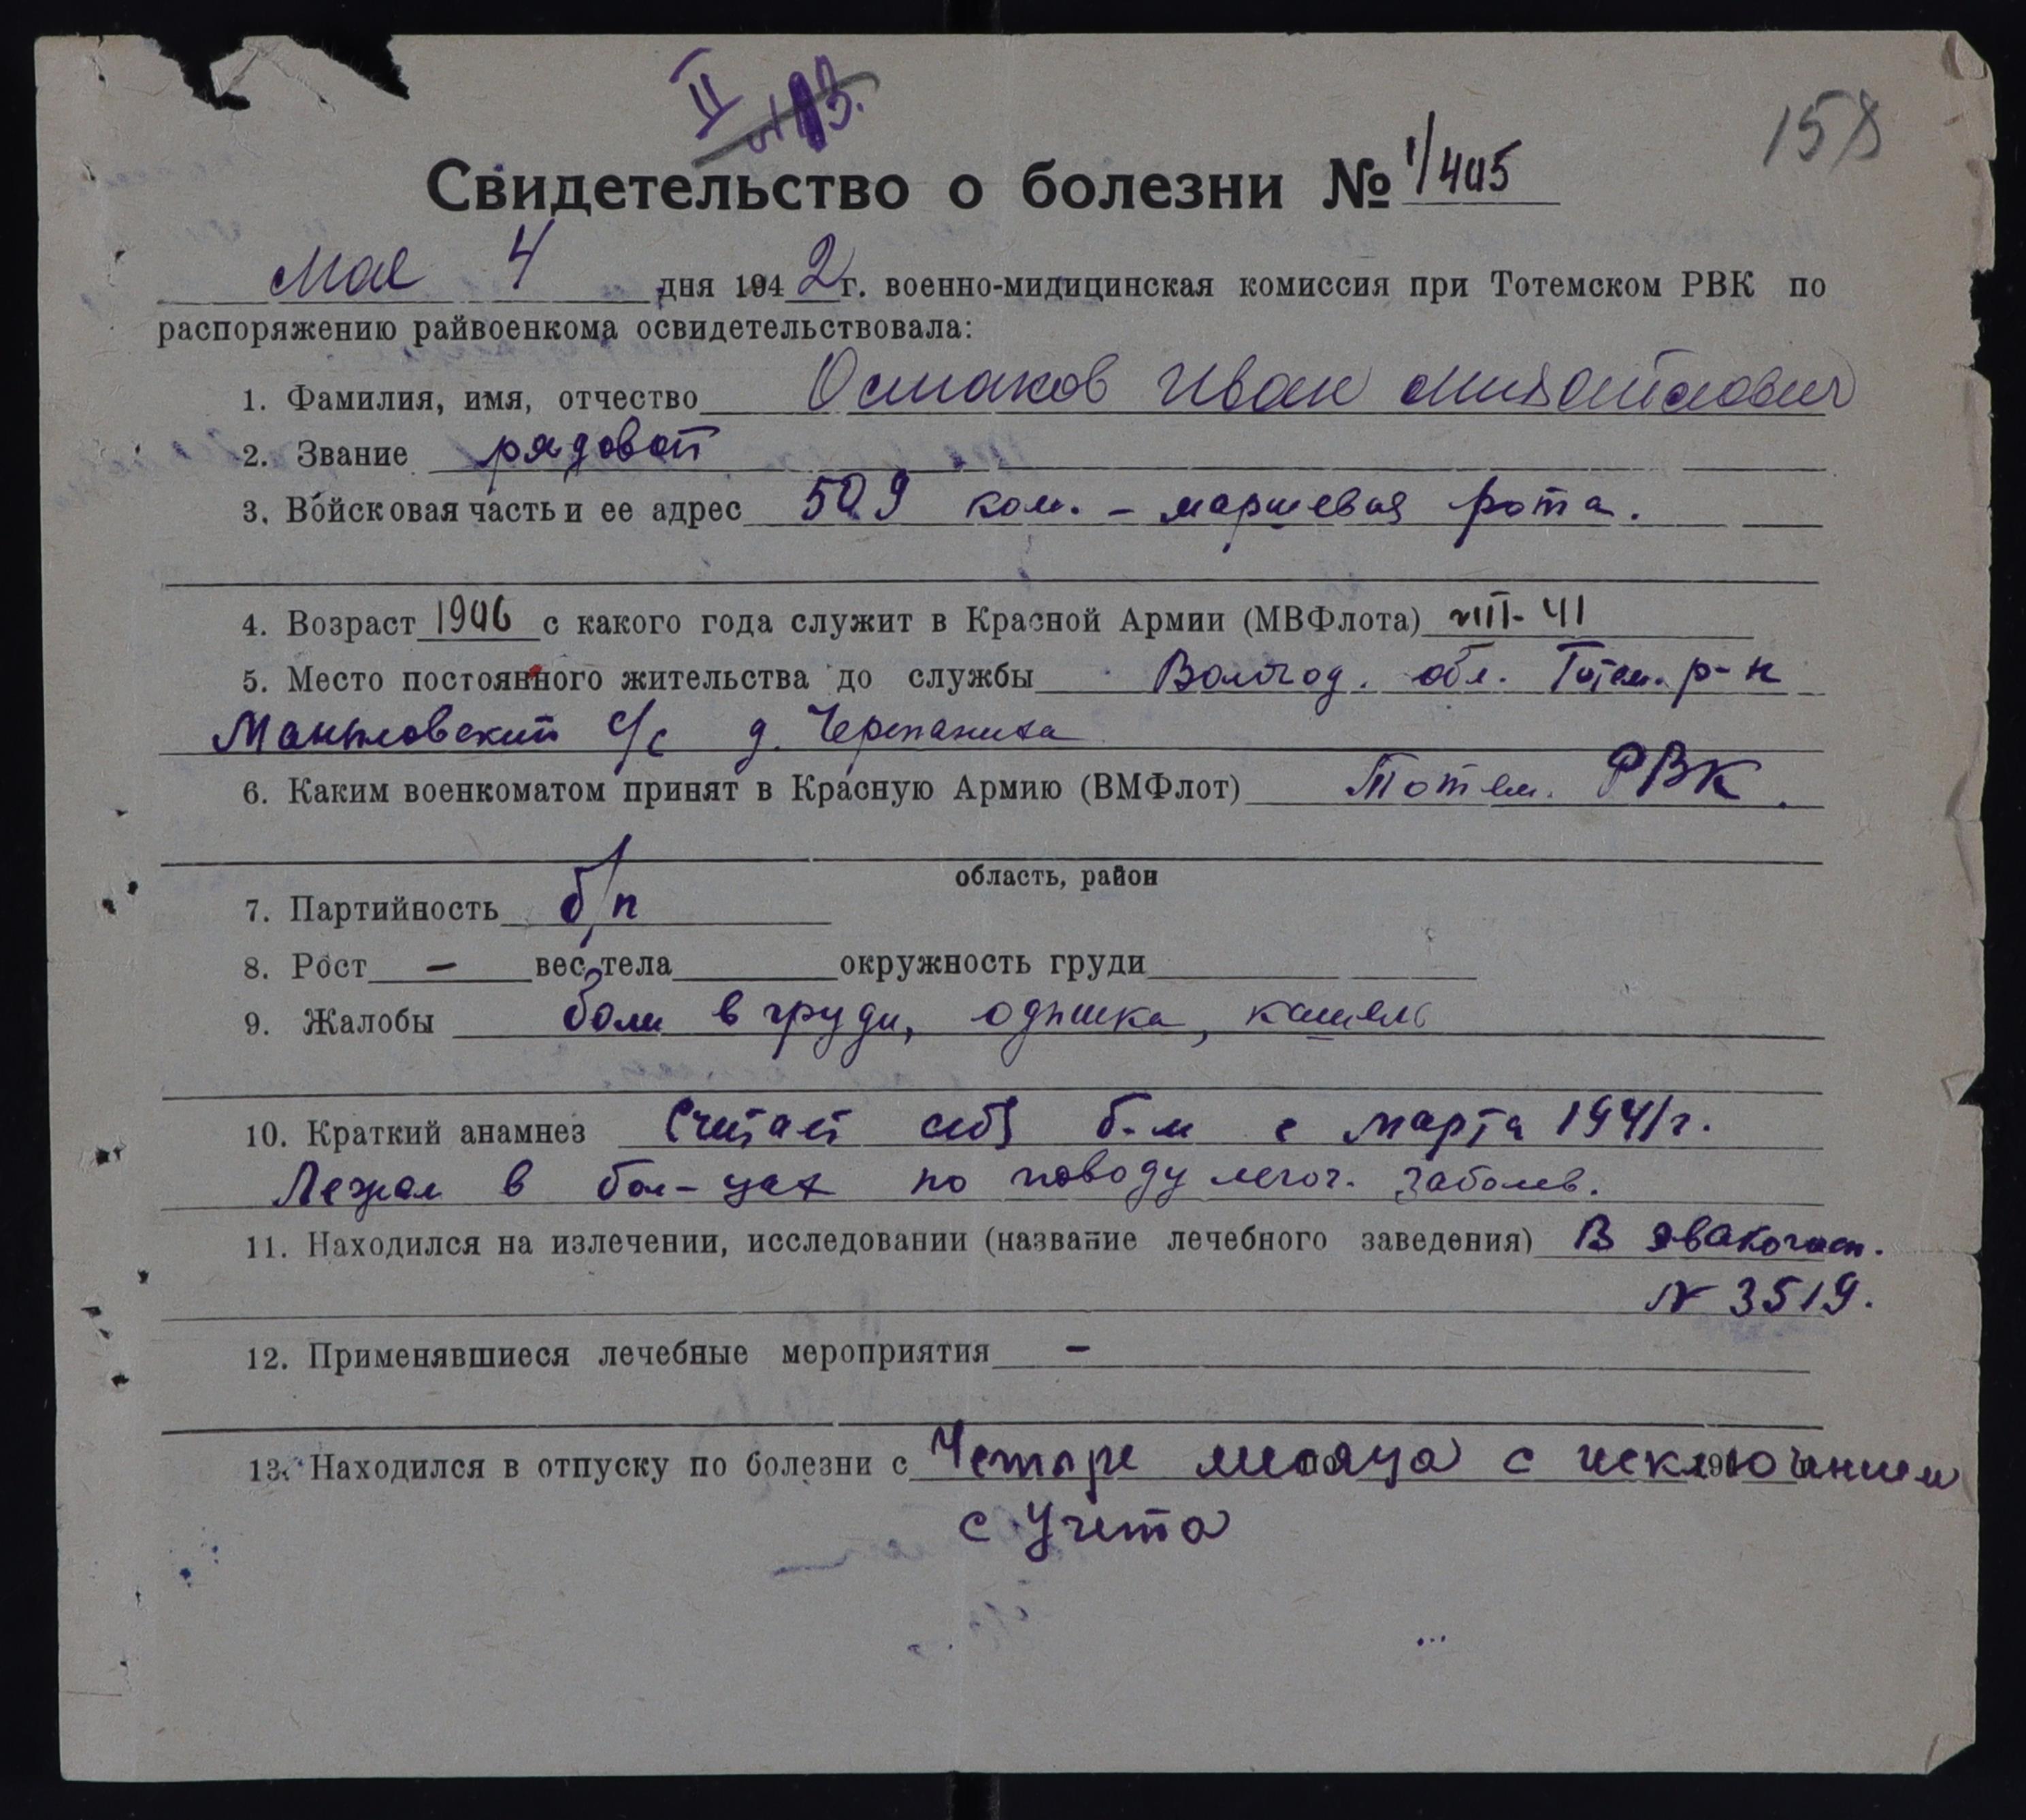 II
158
Свидетельство о болезни № 1/405
Мая 4 дня 1942 г. военно-мидицинская комиссия при Тотемском РВК по
распоряжению райвоенкома освидетельствовала:
1. Фамилия, имя, отчество Осмаков Иван Михайлович
2. Звание рядовой
3. Войсковая часть и ее адрес 509 ком. - маршевая рота.
4. Возраст 1906 с какого года служит в Красной Армии (МВФлота) VIII-41
5. Место постоянного жительства до службы Волог од. обл. Тотем. р-н
Маныловский с/с д. Черепаниха
6. Каким военкоматом принят в Красную Армию (ВМФлот) Тотем. РВК.
область, район
7. Партийность б/п
8. Рост - вес тела окружность груди
9. Жалобы боли в груди, одышка, кашель
10. Краткий анамнез Считает себя б-м с марта 1941 г.
Лежал в бол-цах по поводу легоч. заболев.
11. Находился на излечении, исследовании (название лечебного заведения) В эвакогосп.
N 3519.
12. Применявшиеся лечебные мероприятия -
13. Находился в отпуску по болезни с Четыре месяца с исключением
с учета